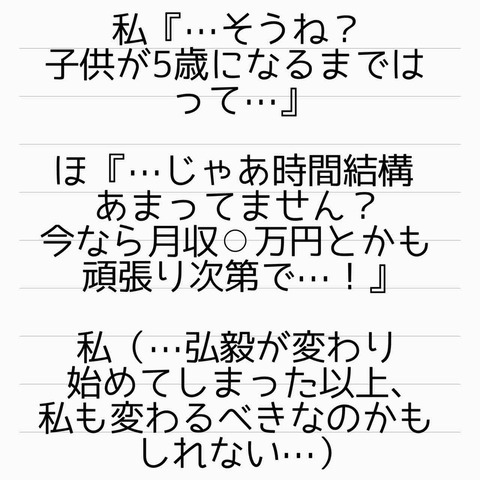 私『…そうね？
子供が5歳になるまでは
って…』
ほ『…じゃあ時間結構
あまってません？
今なら月収○万円とかも
頑張り次第で…！』
私（…弘毅が変わり
始めてしまった以上、
私も変わるべきなのかも
しれない…）